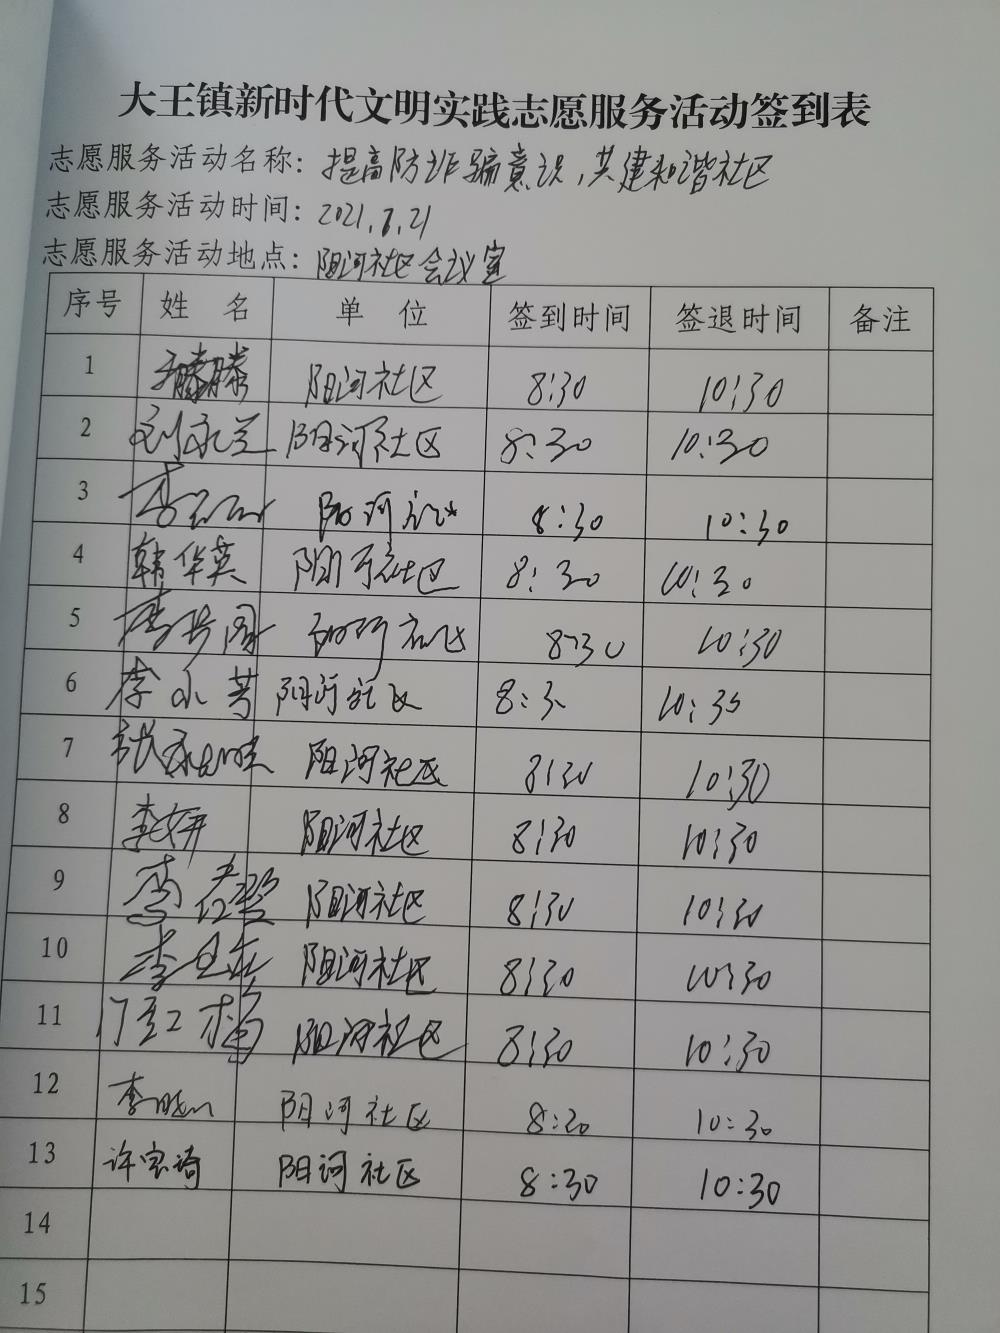 大王镇新时代文明实践志愿服务活动签到表
志愿服务活动名称：提高防诈骗意识，共建和谐社区
志愿服务活动时间：2021.7.21
志愿服务活动地点：阳河社区会议室
序号 姓 名 单 位 签到时间 签退时间 备注
1 阳河社区 8:30 10:30
2 刘永兰 阳河社区 8:30 10:30
3 李 阳河社区 8:30 10:30
4 韩华英 阳河社区 8:30 10:30
5 阳河社区 8:30 10:30
6 李小芳 阳河社区 8:30 10:30
7 张 阳河社区 8:30 10:30
8 李妍 阳河社区 8:30 10:30
9 李 阳河社区 8:30 10:30
10 李 阳河社区 8:30 10:30
11 阳河社区 8:30 10:30
12 李晓 阳河社区 8:30 10:30
13 许家琦 阳河社区 8:30 10:30
14
15